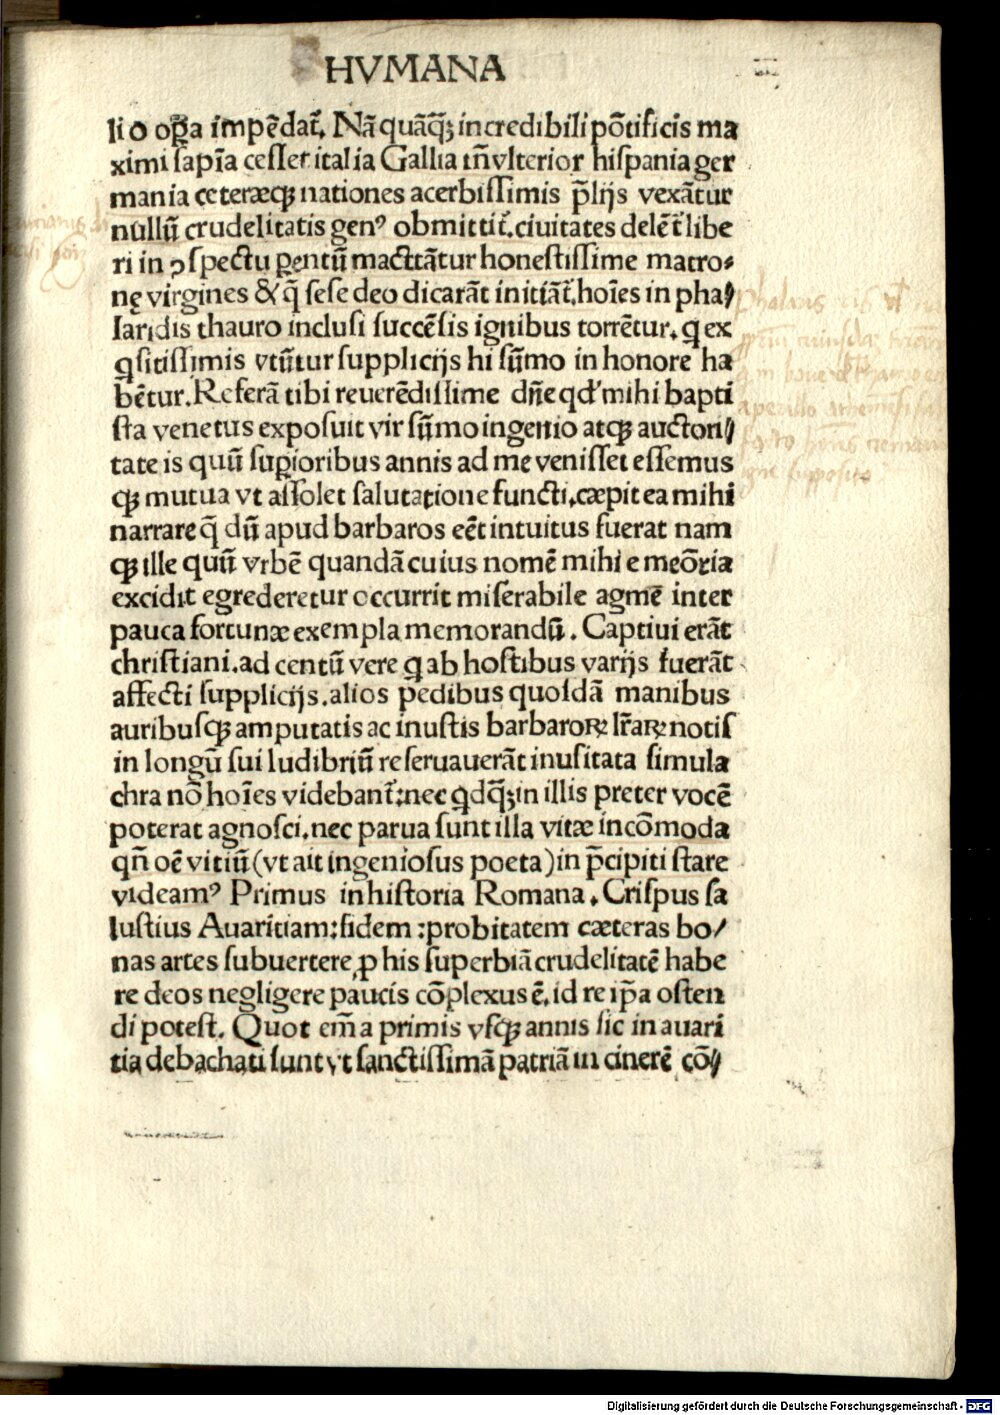 HVMANA
lio oꝑa impēdat᷑. Nā quāq̄ꝫ incredibili pōtificis ma
ximi sapīa cesset italia Gallia m̄vlterior hispania ger
mania ceteræqꝫ nationes acerbissimis p̄lijs vexātur
nullū crudelitatis genꝰ obmittit᷑. ciuitates delēt᷑ libe
ri in ꝯspectu ꝑentū mactātur honestissime matro⸗
nę virgines & q̄ sese deo dicarāt initiāt᷑. hoīes in pha//
laridis thauro inclusi succēsis ignibus torrētur. q ex
q̇sitissimis vtūtur supplicijs hi sūmo in honore ha
bētur. Referā tibi reuerēdissime dn̄e qđ mihi bapti
sta venetus exposuit vir sūmo ingenio atqꝫ auctori//
tate is quū suꝑioribus annis ad me venisset essemus
qꝫ mutua vt assolet salutatione functi. cæpit ea mihi
narrare q̄ dū apud barbaros eēt intuitus fuerat nam
qꝫ ille quū vrbē quandā cuius nomē mihi e meōria
excidit egrederetur occurrit miserabile agmē inter
pauca fortunæ exempla memorandū. Captiui erāt
christiani. ad centū vere q ab hostibus varijs fuerāt
affecti supplicijs. alios pedibus quosdā manibus
auribusqꝫ amputatis ac inustis barbaroꝝ lr̄aꝝ notis
in longū sui ludibriū reseruauerāt inusitata simula
chra nō hoīes videbant᷑: nec qdq̄ꝫ in illis preter vocē
poterat agnosci. nec parua sunt illa vitæ incōmoda
qn̄ oē vitiū (vt ait ingeniosus poeta) in p̄cipiti stare
videamꝰ Primus in historia Romana. Crispus sa
lustius Auaritiam: fidem: probitatem cæteras bo/
nas artes subuertere ꝓ his superbiā crudelitatē habe
re deos negligere paucis cōplexus ē. id re ip̄a osten
di potest. Quot em̄ a primis vsqꝫ annis sic in auari
tia debachati sunt vt sanctissimā patriā in cinerē cō//
Digitalisierung gefördert durch die Deutsche Forschungsgemeinschaft - DFG